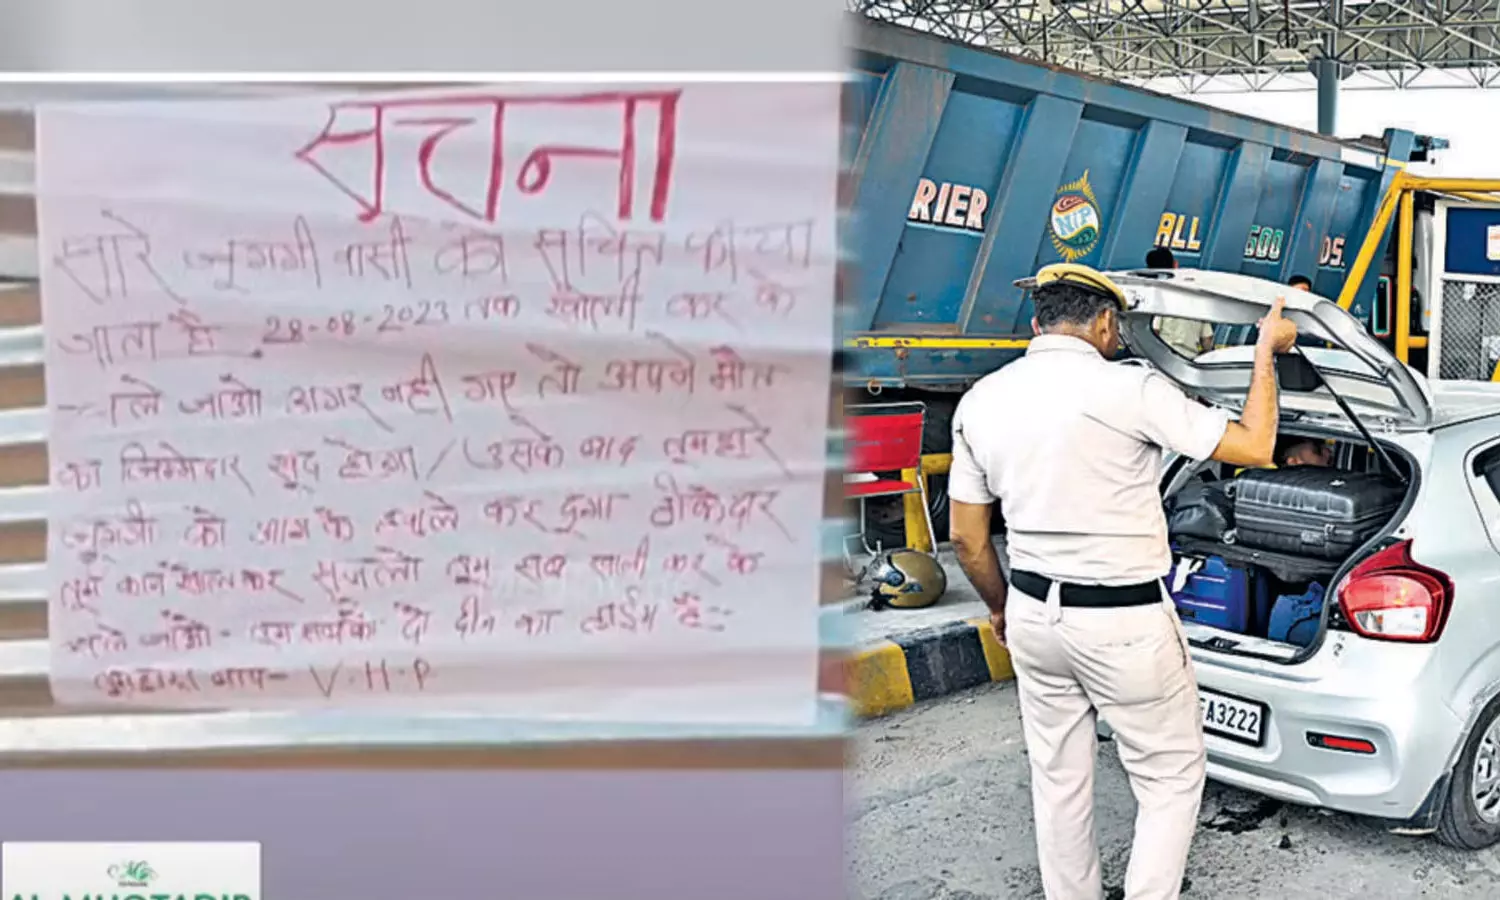 सुचना
सारे जुगगी वासी को सुचित कीया
जाता है. 28-08-2023 तक खाली कर के
चले जाओ अगर नही गए तो अपने मौत
का जिम्मेदार खुद होगा/ उसके बाद तुमहारे
जुगगी को आग के हवाले कर दुगा ठीकेदार
तुम कान खोलकर सुनलो तुम सब खाली कर के
चले जाओ - तुम सबके दो दीन का टाईम है -
तुम्हारा बाप - V.H.P
RIER
NIP
ALL
GOO
DS.
FA3222
MG
AL MUQTADIR